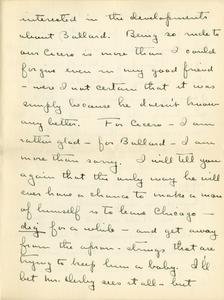 interested in the developments
about Ballard. Being so rude to
our Cicero is more than I could
forgive even in my good friend
- were I not certain that it was
simply because he doesn't know
any better. For Cicero - I am
rather glad - for Ballard - I am
more than sorry. I will tell you
again that the only way he will
ever have a chance to make a man
of himself is to leave Chicago -
dig for a while - and get away
from the apron-strings that are
trying to keep him a baby. I'll
bet Mr. Darby sees it all - but